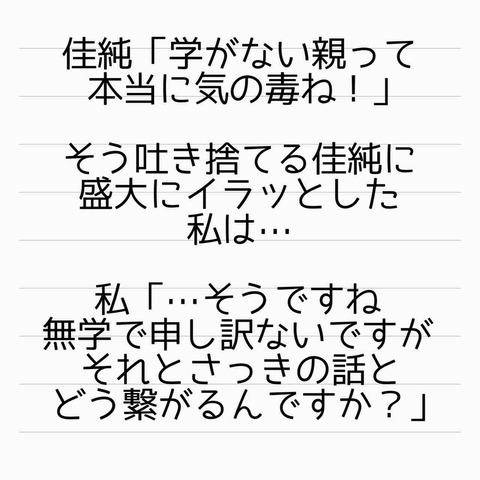 佳純「学がない親って
本当に気の毒ね！」
そう吐き捨てる佳純に
盛大にイラッとした
私は…
私「…そうですね
無学で申し訳ないですが
それとさっきの話と
どう繋がるんですか？」